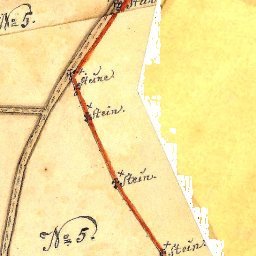 Stein
No 5.
Steine.
Stein.
Stein.
No 5.
Stein.